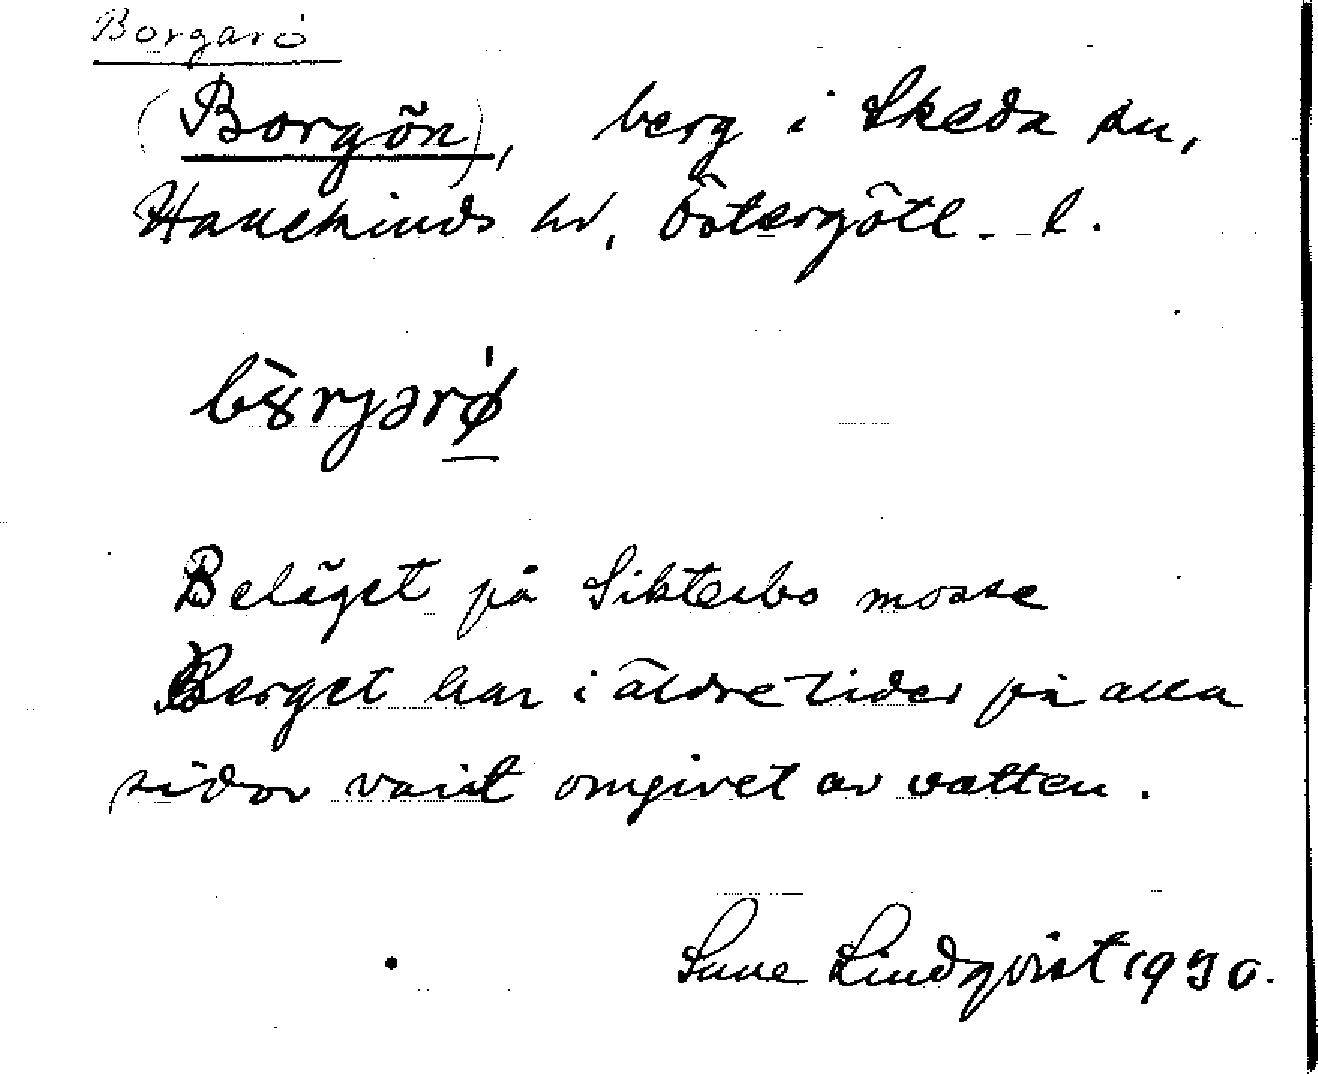 Borgarö
(Borgön), berg i Skeda sn,
Hanekinds hd, Östergötl. l.
bȣrjərø̀
Beläget på Sikterbo mosse
Berget har i äldre tider på alla
sidor varit omgivet av vatten.
Sune Lindqvist 1930.